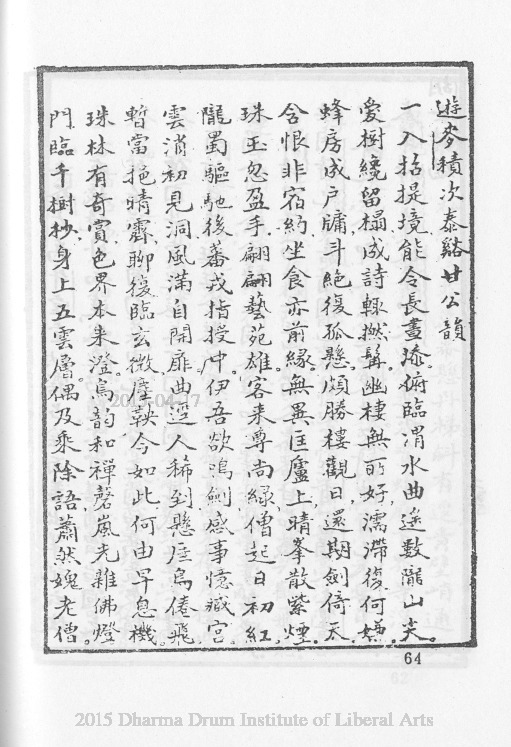 遊麥積次泰谿甘公韻
一入招提境能令長晝添俯臨渭水曲遙數隴山尖
愛樹纔留榻成詩輒撚髯幽棲無所好濡滯復何嫌
蜂房成戶牖斗絶復孤懸頗勝樓觀日還期劍倚天
含恨非宿約坐食亦前緣無異匡廬上晴峯散紫煙
珠玉忽盈手翩翩藝苑雄客來尊尚綠僧起日初紅
隴蜀驅馳後蕃戎指授中伊吾欲鳴劍感事憶臧宮
雲消初見洞風滿自開扉曲逕人稀到懸崖鳥倦飛
暫當挹晴霽聊復臨玄微塵鞅今如此何由早息機
珠林有奇賞色界本來澄鳥韵和禪磬嵐光雜佛燈
門臨千樹杪身上五雲層偶及乘除語蕭然媿老僧
64
2015 Dharma Drum Institute of Liberal Arts